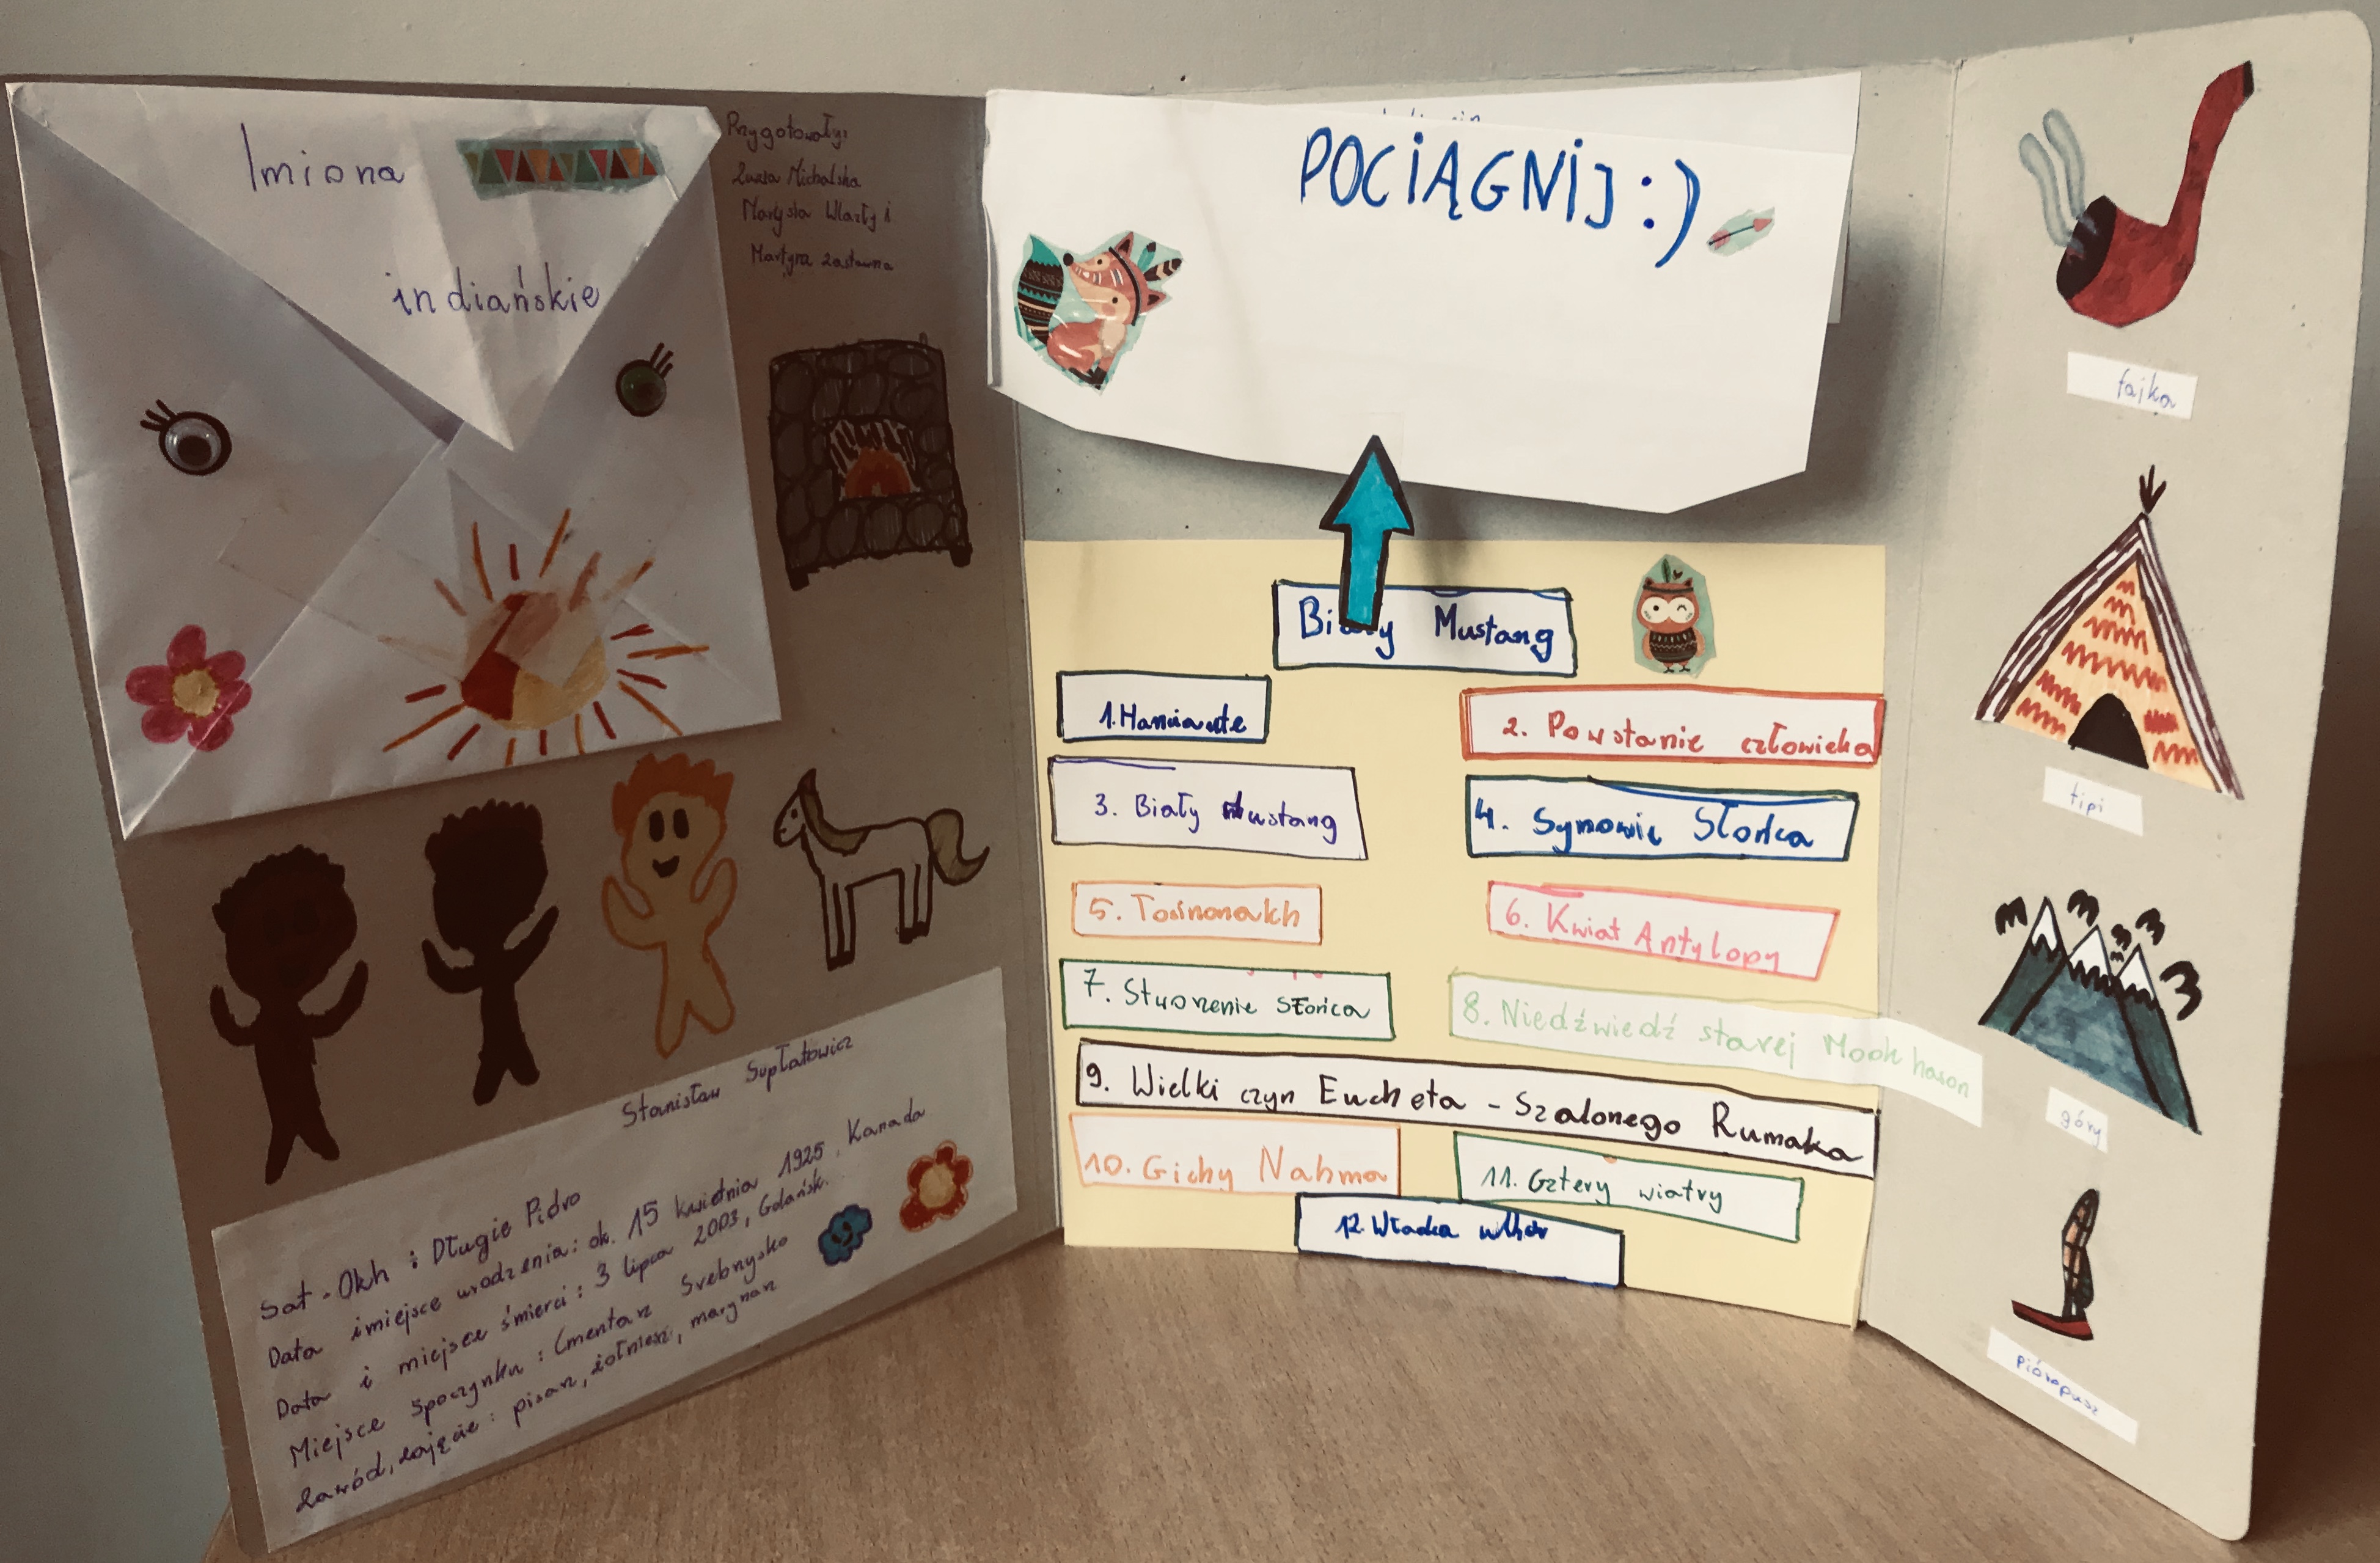 Imiona
indiańskie
Przygotowały:
Zuzia Michalska
Marysia Wlazły i
Martyna Zastawna
POCIĄGNIJ :)
Biały Mustang
1. Hamiawte
2. Powstanie człowieka
3. Biały Mustang
4. Synowie Słońca
5. Tosinonakh
6. Kwiat Antylopy
7. Stworzenie Słońca
8. Niedźwiedź starej Mookhason
9. Wielki czyn Eucheta - Szalonego Rumaka
10. Gichy Nahma
11. Cztery wiatry
12. Władca
fajka
tipi
góry
pióropusz
Stanisław Supłatowicz
Sat-Okh : Długie Pióro
Data i miejsce urodzenia: ok. 15 kwietnia 1925, Kanada
Data i miejsce śmierci: 3 lipca 2003, Gdańsk.
Miejsce spoczynku: Cmentarz Srebrzysko
Zawód, zajęcie: pisarz, żołnierz, marynarz